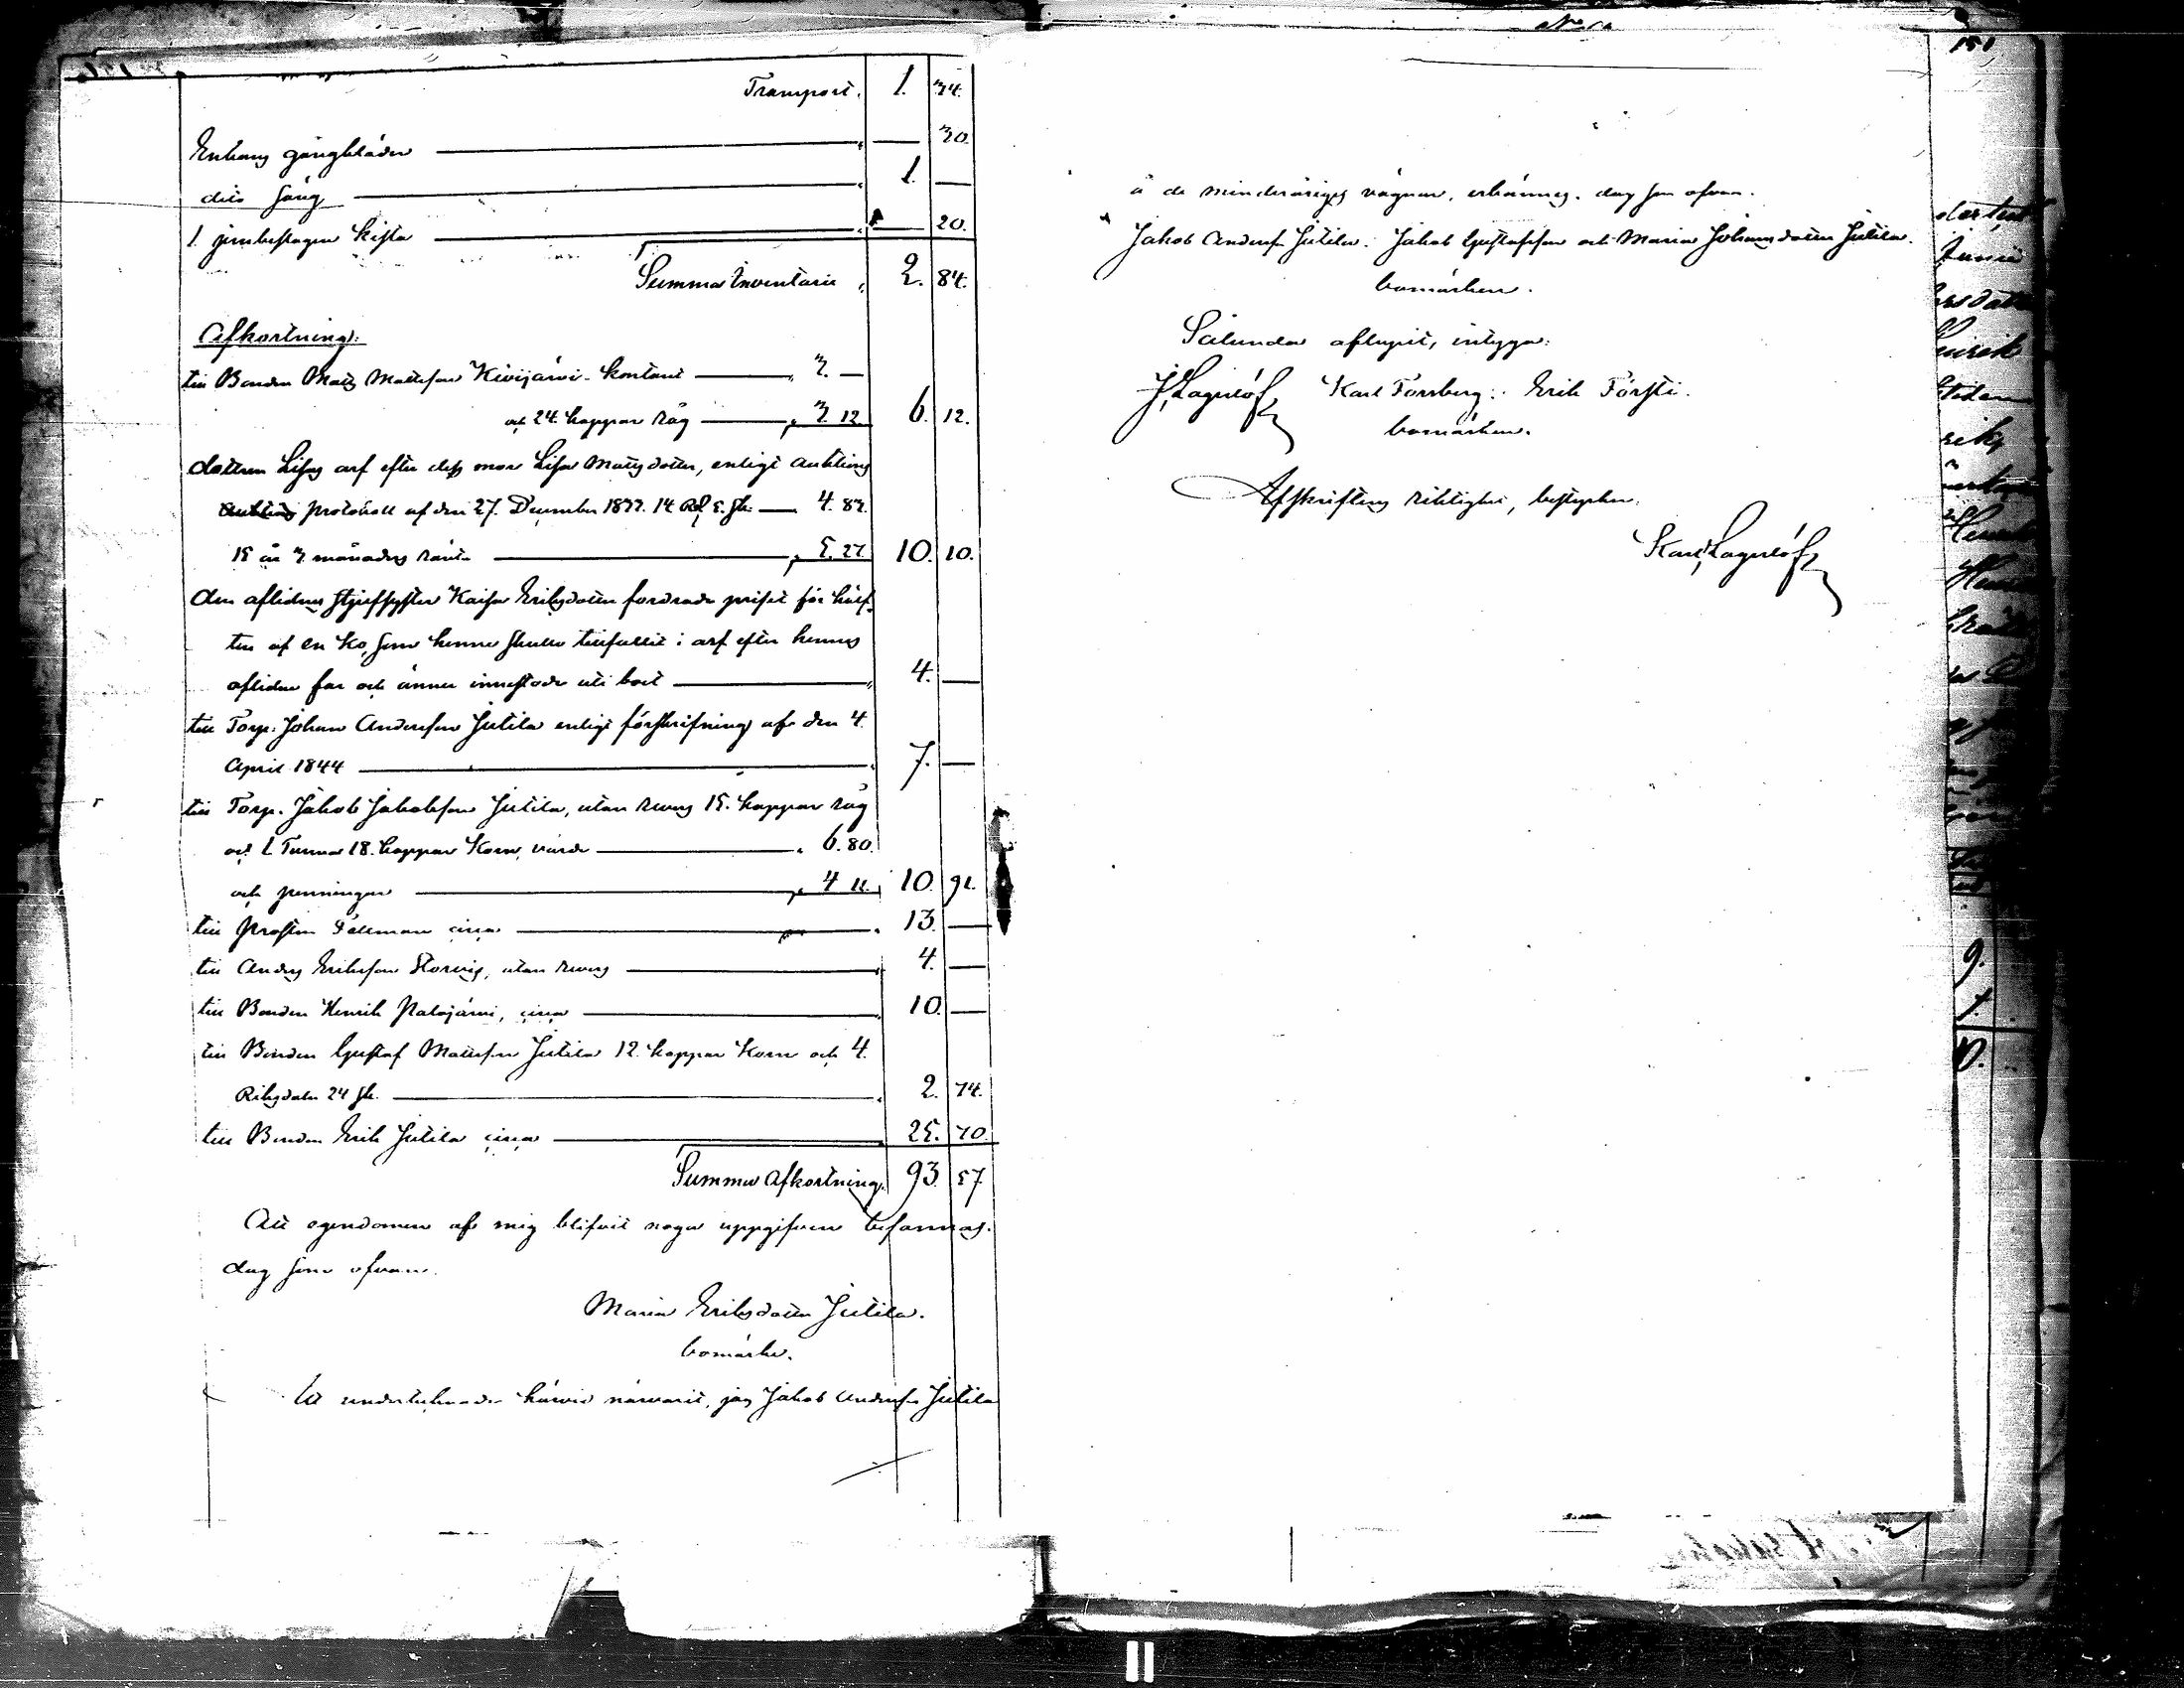 Transport. 1. 34.
Enkans gångkläder — 30.
dito säng 1. —
1. jernbeslagen kista — 20.
Summa Inventarii 2. 84.
Afkortning:
till Bonden Matts Mattsson Kivijärvi kontant 3. —
och 24 kappar råg 3. 12. 6. 12.
dottren Lisas arf efter dess mor Lisa Mattsdotter, enligt auktions
protokoll af den 27. December 1833. 14 Rd. 5. sk. 4. 83.
15 år 3 månaders ränta 5. 27. 10. 10.
den aflidnes styfsyster Kaisa Eriksdotter fordrade priset för hälf-
ten af en Ko, som henne skulle tillfallit i arf efter hennes
aflidne far och ännu innestode uti boet 4. —
till Torp. Johan Andersson Jutila enligt förskrifning af den 4.
April 1844 7. —
till Torp. Jakob Jakobsson Jutila, utan revers 15. kappar råg
och 1 Tunna 18. kappar Korn, värde 6. 80.
och penningar 4 11. 10. 91.
till Prosten Fellman cirka 13. —
till Anders Eriksson utan revers 4. —
till Bonden Henrik Palojärvi, cirka 10. —
till Bonden Gustaf Mattsson Jutila 12. kappar Korn och 4.
Riksdaler 24 sk. 2. 74.
till Bonden Erik Jutila cirka 25. 70.
Summa Afkortning. 93. 57.
Att egendomen af mig blifvit noga uppgifven
dag som ofvan.
Maria Eriksdotter Jutila.
bomärke.
Att undertecknade härvid närvarit, jag Jakob Andersson Jutila
151
å de minderårigas vägnar, erkännes. dag som ofvan.
Jakob Andersson Jutila. Jakob Gustafsson och Maria Johansdotter Jutila.
bomärken.
Sålunda aflupit, intyga:
J. Lagerlöf Karl Forsberg. Erik Försti.
bomärken.
Afskriftens riktighet, bestyrker
Karl Lagerlöf